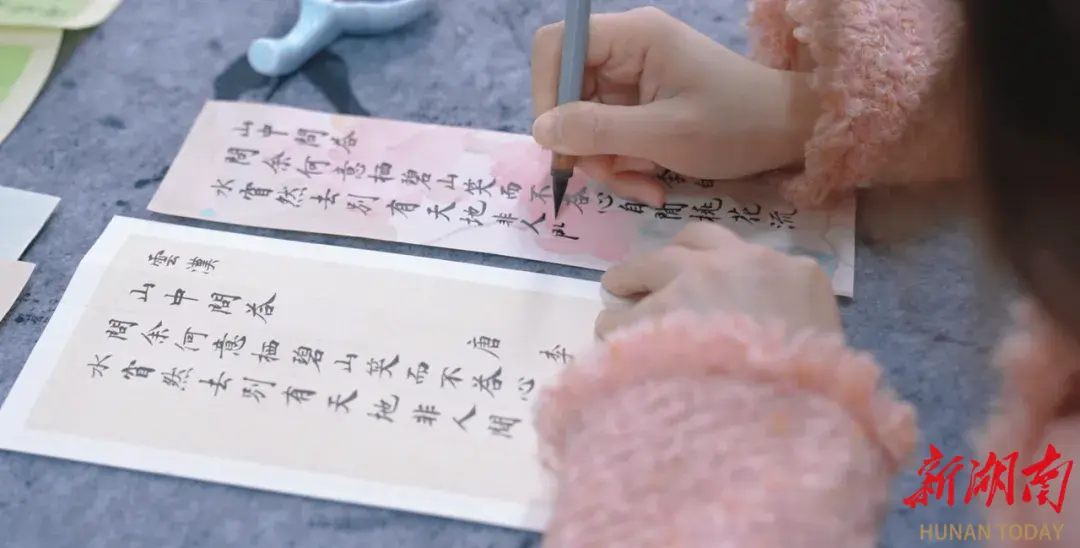 山中問荅
問余何意栖碧山笑而不荅心自閒桃花流
水窅然去別有天地非人
雲漢
山中問荅
唐 李
問余何意栖碧山笑而不荅心
水窅然去別有天地非人閒
新湖南
HUNAN TODAY